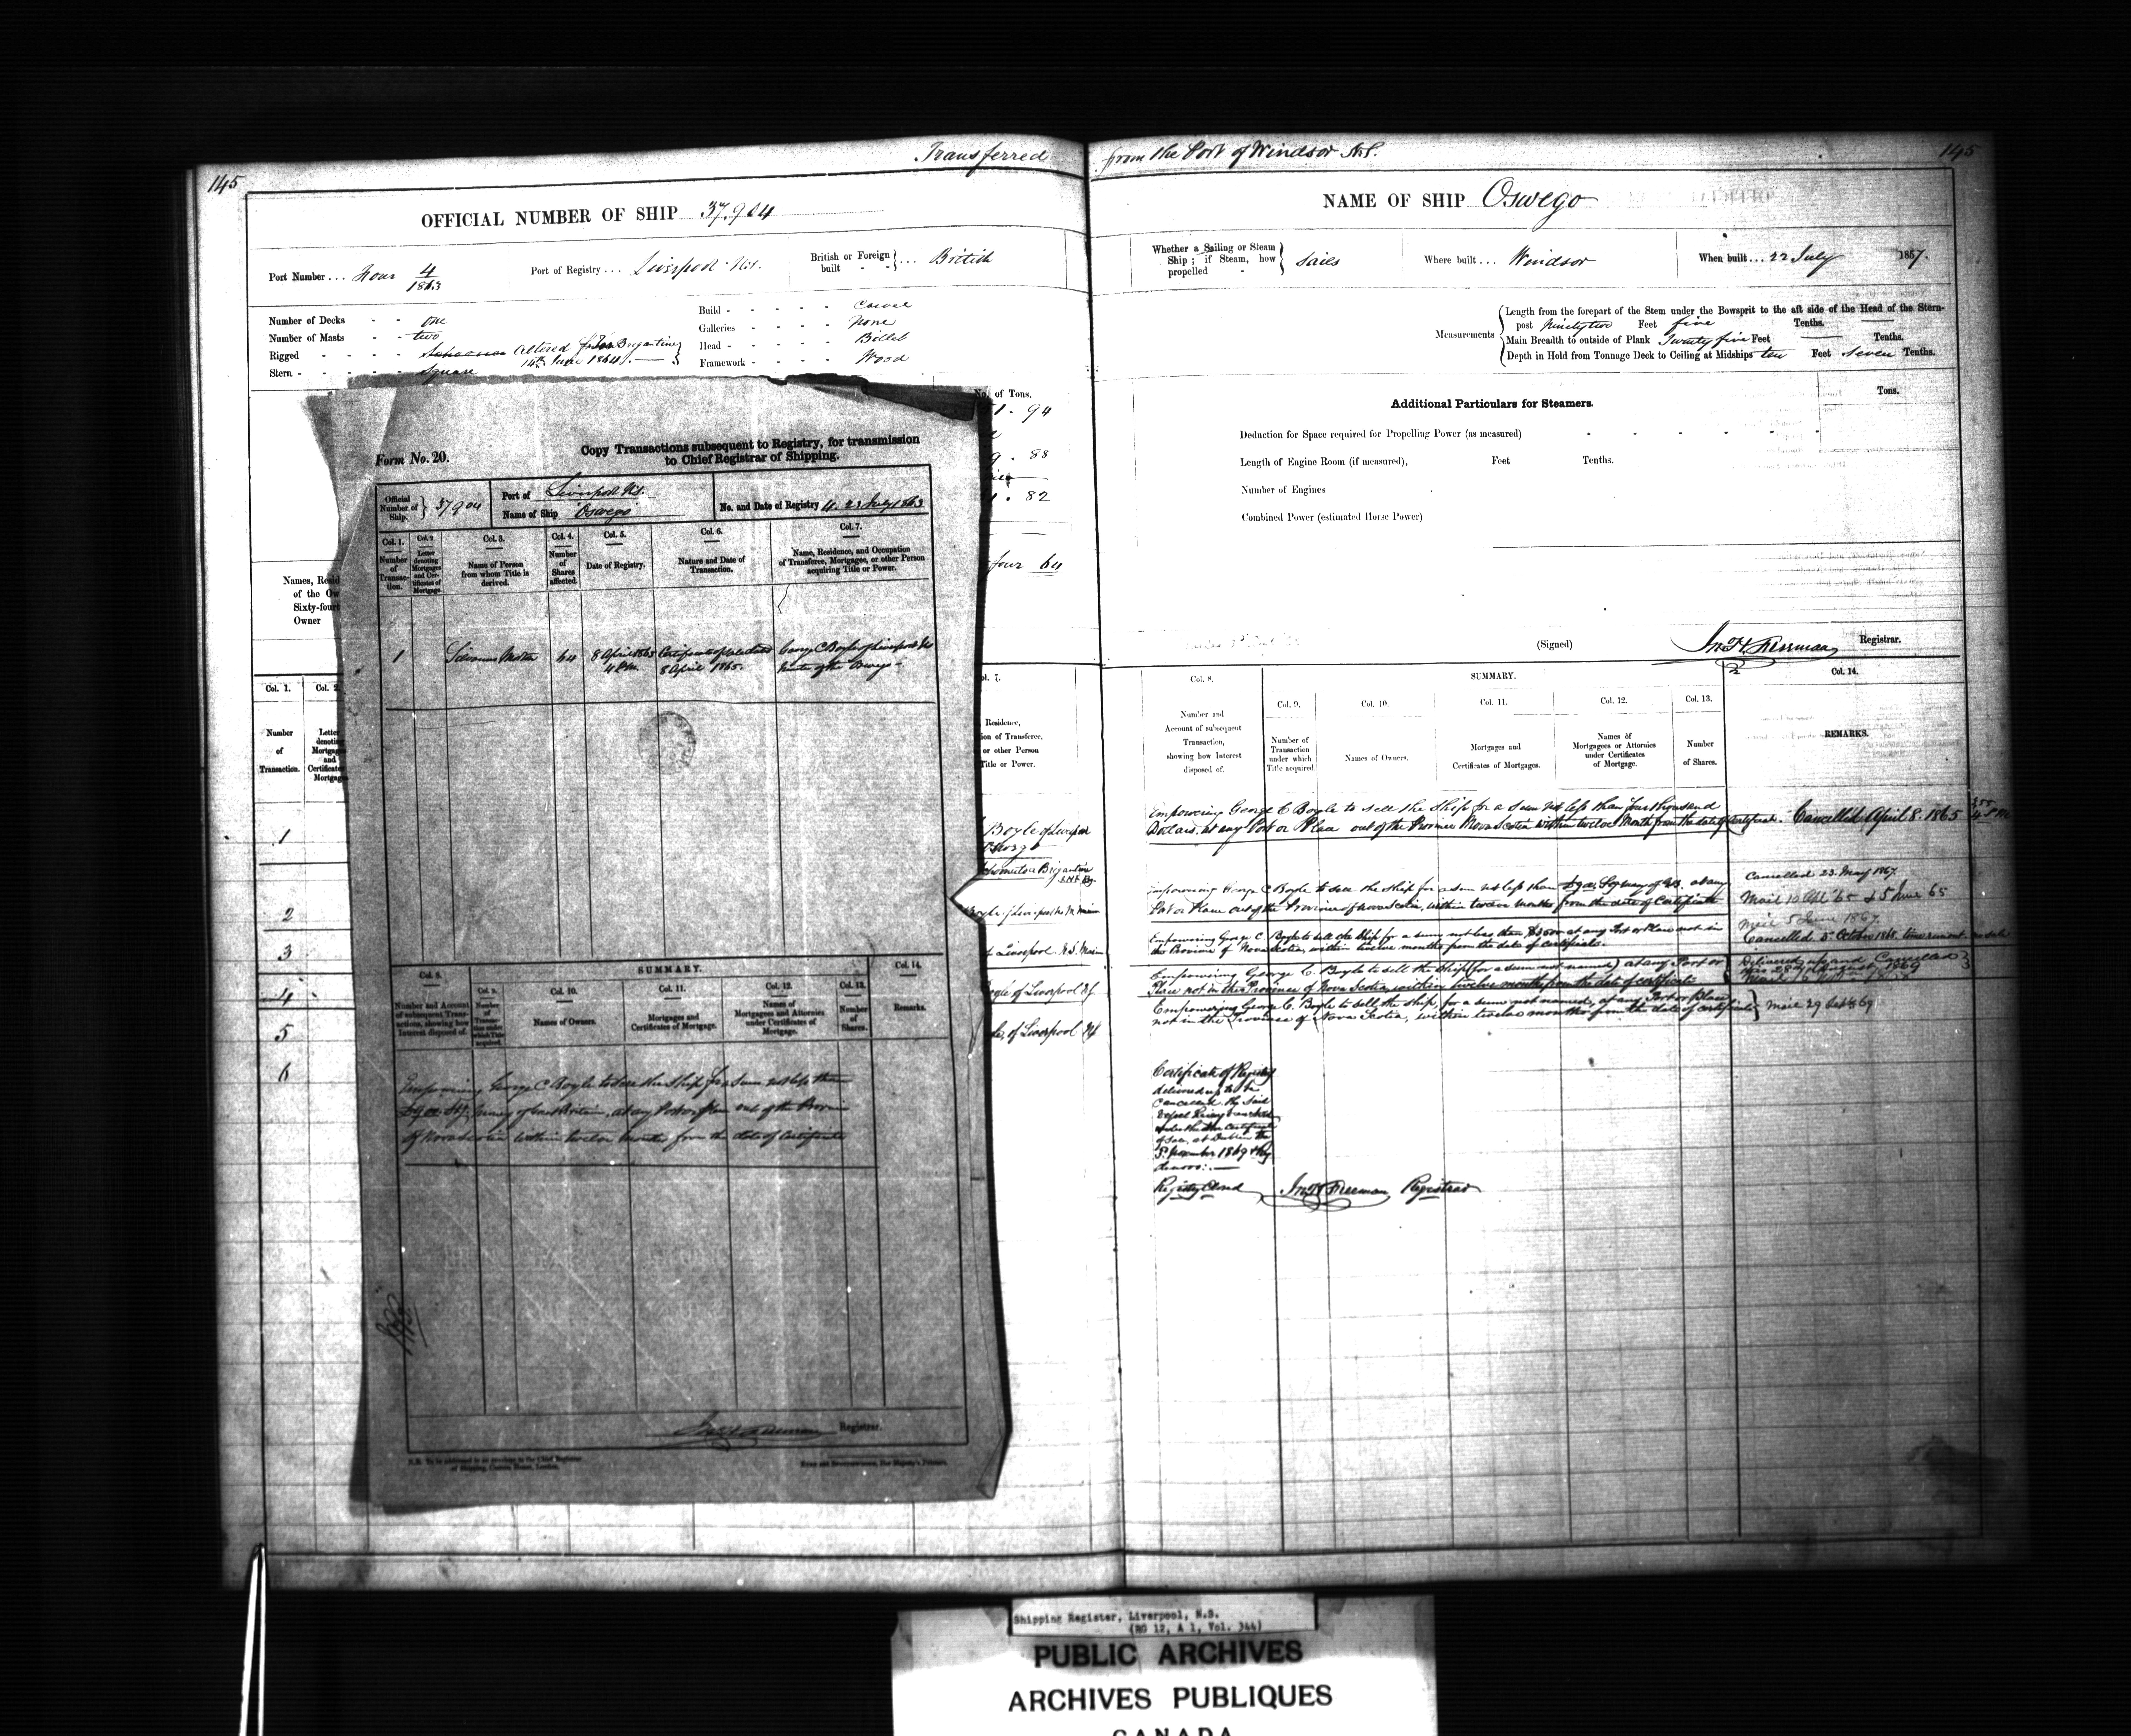 145
Transferred from the Port of Windsor N.S.
145
OFFICIAL NUMBER OF SHIP 37.904
NAME OF SHIP Oswego
Port Number ... Four 4/1863
Port of Registry ... Liverpool N.S.
British or Foreign built } ... British
Whether a Sailing or Steam Ship; if Steam, how propelled - { Sails
Where built ... Windsor
When built ... 22 July 1857.
Number of Decks - - one
Number of Masts - - two
Rigged - - - - Schooner Altered to Brigantine
14th June 1864
Stern - - - - - Square
Build - - - - - Carvel
Galleries - - - - None
Head - - - - - Billet
Framework - - - - Wood
Measurements
Length from the forepart of the Stem under the Bowsprit to the aft side of the Head of the Stern-
post ninety two Feet five Tenths.
Main Breadth to outside of Plank Twenty five Feet Tenths.
Depth in Hold from Tonnage Deck to Ceiling at Midships ten Feet seven Tenths.
No. of Tons.
94
88
82
four 64
Additional Particulars for Steamers.
Tons.
Deduction for Space required for Propelling Power (as measured)
Length of Engine Room (if measured), Feet Tenths.
Number of Engines
Combined Power (estimated Horse Power)
(Signed) Jno H Freeman Registrar.
Names, Resid
of the Ow
Sixty-fourt
Owner
Form No. 20.
Copy Transactions subsequent to Registry, for transmission
to Chief Registrar of Shipping.
Official Number of Ship. } 37904
Port of Liverpool N.S.
Name of Ship "Oswego"
No. and Date of Registry 4. 23 July 1863
Col. 1.
Number of Transaction.
Col. 2
Letter denoting Mortgages and Certificates of Mortgage.
Col. 3.
Name of Person from whom Title is derived.
Col. 4.
Number of Shares affected.
Col. 5.
Date of Registry.
Col. 6.
Nature and Date of Transaction.
Col. 7.
Name, Residence, and Occupation of Transferee, Mortgagee, or other Person acquiring Title or Power.
1
64
8 April 1865
4 P.M.
Certificate of Sale dated
8 April 1865.
George C Boyle of Liverpool NS
Master of the Oswego
SUMMARY.
Col. 8.
Number and Account of subsequent Transactions, showing how Interest disposed of.
Col. 9.
Number of Transaction under which Title acquired.
Col. 10.
Names of Owners.
Col. 11.
Mortgages and Certificates of Mortgage.
Col. 12.
Names of Mortgagees and Attornies under Certificates of Mortgage.
Col. 13.
Number of Shares.
Col. 14.
Remarks.
Empowering George C Boyle to sell the Ship for a sum not less than
money of Great Britain, at any Port or place out of the Province
of Nova Scotia within twelve months from the date of Certificate
Jno H Freeman Registrar.
N.B. To be addressed in an envelope to the Chief Registrar
of Shipping, Custom House, London.
EYRE and SPOTTISWOODE, Her Majesty's Printers.
Col. 1.
Col. 2
Number
of
Transaction.
Letter
denoting
Mortgage
and
Certificate
Mortgag
ol. 7.
Residence,
ion of Transferee,
or other Person
Title or Power.
1
2
3
4
5
6
Boyle of Liverpool
Brigantine
of Liverpool N.S.
Boyle of Liverpool N.S.
of Liverpool NS
Col. 8.
Number and
Account of subsequent
Transaction,
showing how Interest
disposed of.
SUMMARY.
Col. 9.
Number of
Transaction
under which
Title acquired.
Col. 10.
Names of Owners.
Col. 11.
Mortgages and
Certificates of Mortgages.
Col. 12.
Names of
Mortgagees or Attornies
under Certificates
of Mortgage.
Col. 13.
Number
of Shares.
Col. 14.
REMARKS.
Empowering George C Boyle to sell the Ship for a sum not less than four thousand
Dollars, at any Port or Place out of the Province Nova Scotia within twelve Month from the date of Certificate. Cancelled April 8. 1865 4 P.M.
Empowering George C Boyle to sell the Ship for a sum not less than money of GB. at any
Port or Place out of the Province of Nova Scotia, within twelve months from the date of Certificate
Cancelled 23 May 1867.
Mail 10 Apl 65 & 5 June 65
Empowering George C. Boyle to sell the Ship for a sum not less than $3500 at any Port or Place not in
the Province of Nova Scotia, within twelve months from the date of certificate.
Mail 5 June 1867.
Cancelled 5 October 1868.
Empowering George C. Boyle to sell the Ship (for a sum not named) at any Port or
Place not in this Province of Nova Scotia, within twelve months from the date of certificate
Delivered up and Cancelled
this 28th August 1869
Empowering George C. Boyle to sell the ship, for a sum not named, at any Port or Place
not in the Province of Nova Scotia, within twelve months from the date of certificate } Mail 29 Sept 69
Certificate of Registry
delivered up to be
cancelled. the said
Vessel having been sold
under the certificate
of Sale, at Dublin the
1869
Registry Closed
Jno H Freeman Registrar
Shipping Register, Liverpool, N.S.
(RG 12, A 1, Vol. 344)
PUBLIC ARCHIVES
ARCHIVES PUBLIQUES
CANADA